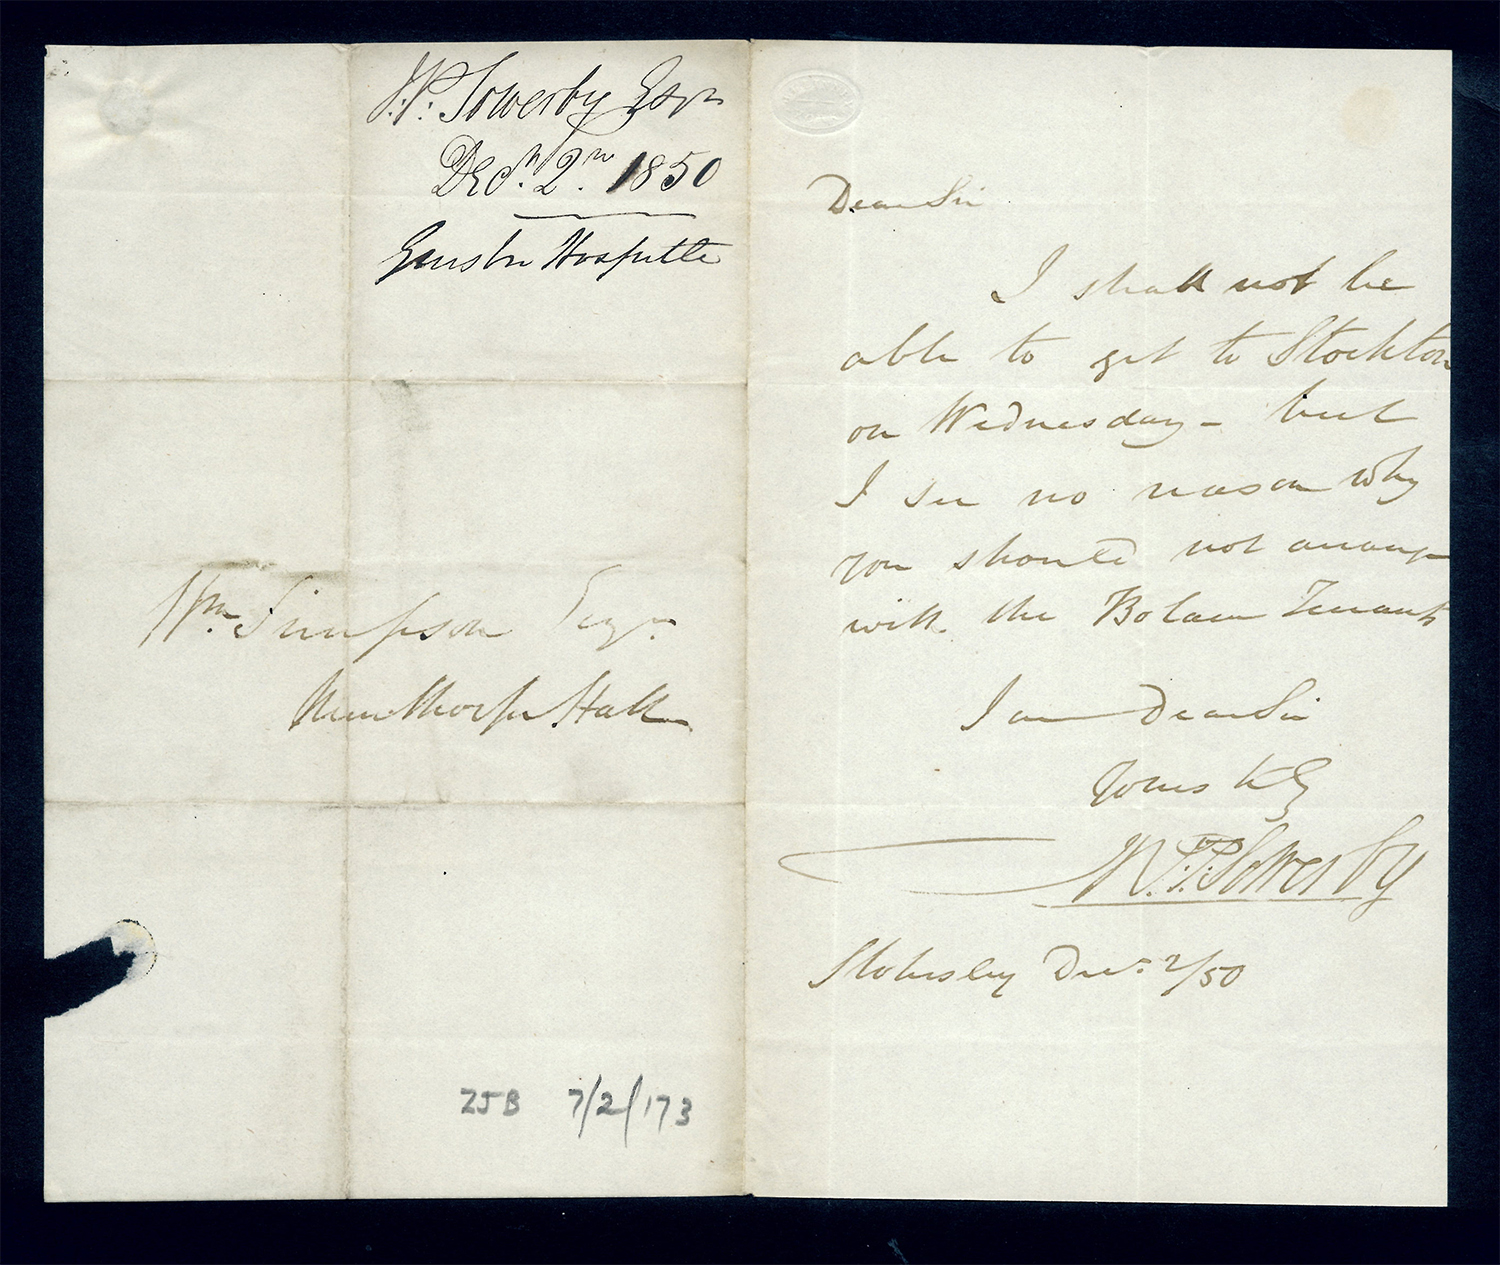 J. P. Sowerby Esqr
Decr. 2nd. 1850
Hospitle
Wm. Simpson Esqr.
Nunthorpe Hall
ZJB 7/2/173
Dear Sir
I shall not be
able to get to Stockton
on Wednesday - but
I see no reason why
you should not arrange
with the Bolam Tenants
I am Dear Sir
Yours try
P. Sowerby
Stokesley Decr. 2/50